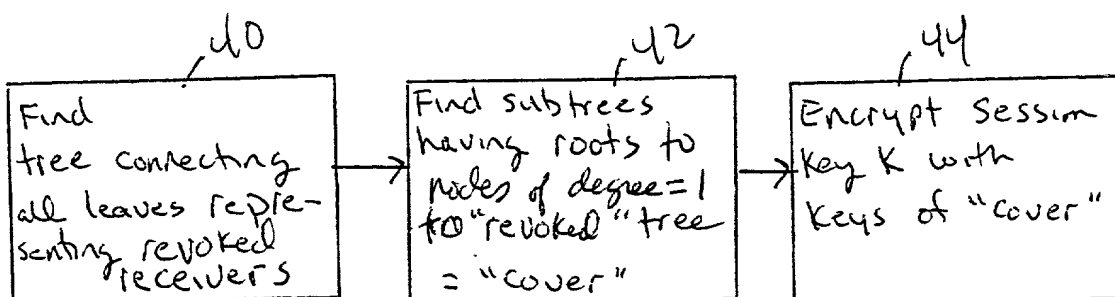 40
Find
tree connecting
all leaves repre-
senting revoked
receivers
42
Find subtrees
having roots to
nodes of degree=1
to "revoked" tree
= "cover"
44
Encrypt Session
Key K with
Keys of "cover"